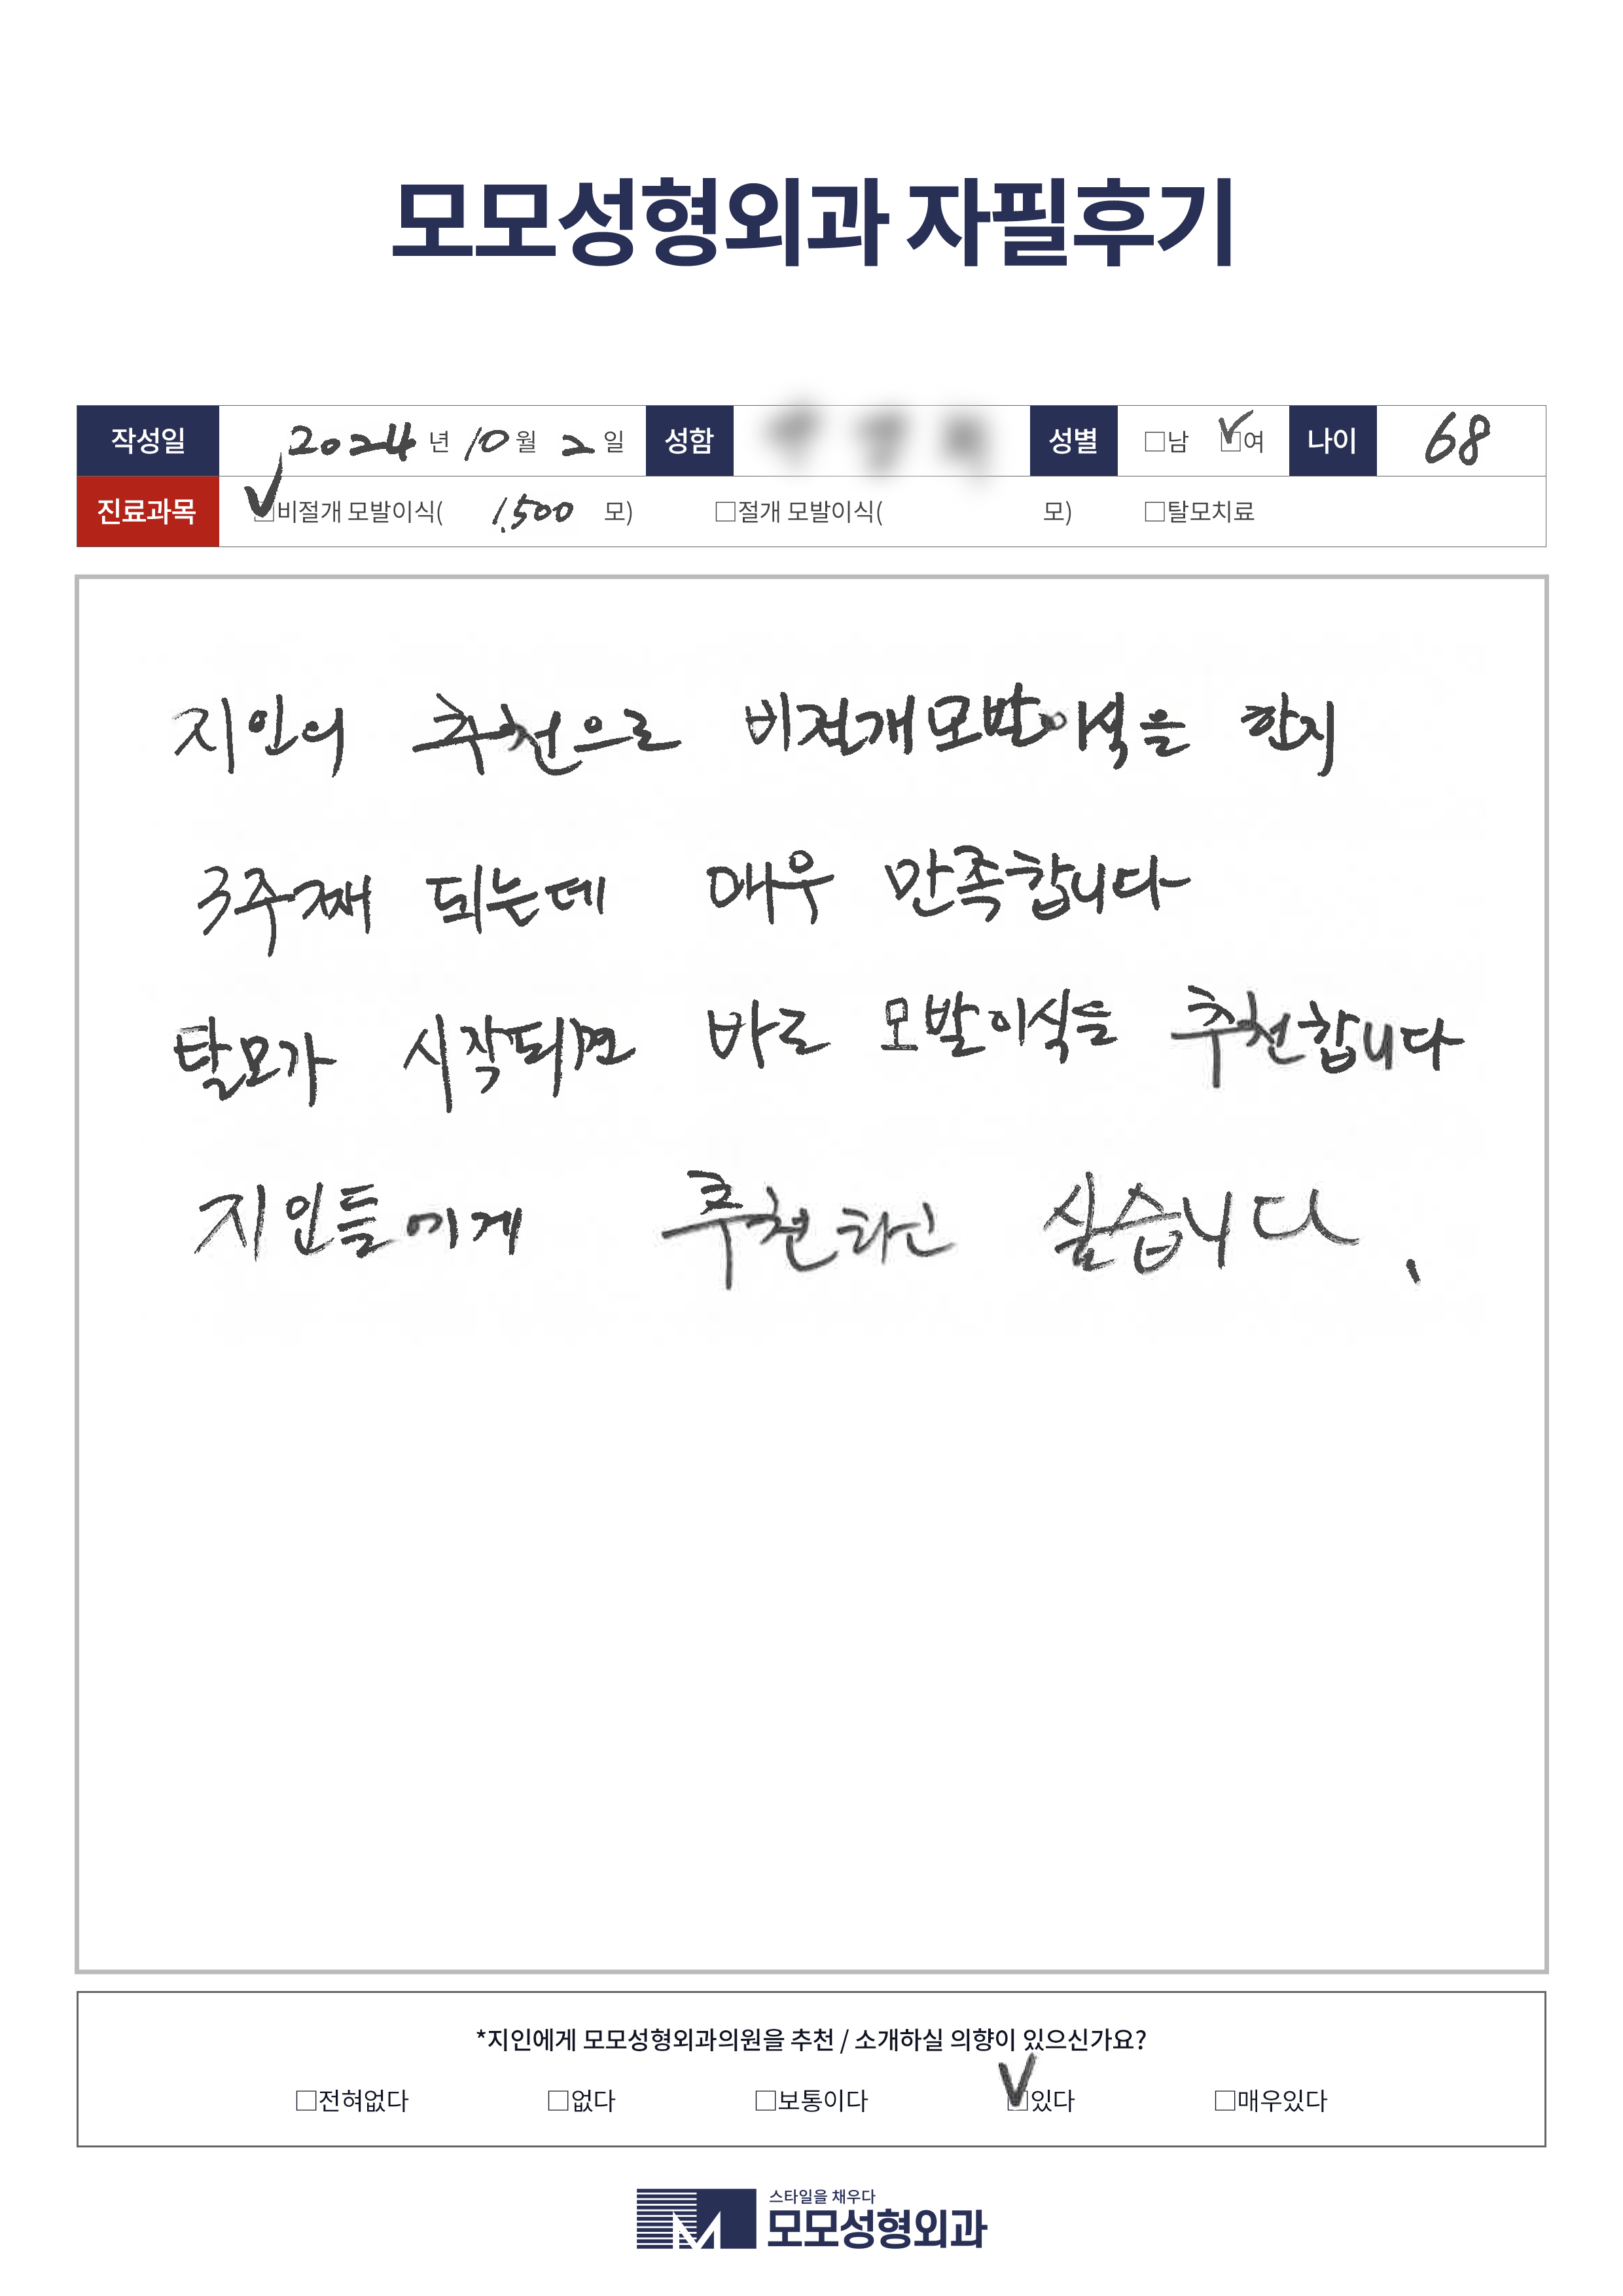 모모성형외과 자필후기
작성일 2024 년 10 월 2 일 성함 성별 □남 ☑여 나이 68
진료과목 ☑비절개 모발이식( 1,500 모) □절개 모발이식( 모) □탈모치료
지인의 추천으로 비절개모발이식을 한지
3주째 되는데 매우 만족합니다
탈모가 시작되면 바로 모발이식을 추천합니다
지인들에게 추천하고 싶습니다.
*지인에게 모모성형외과의원을 추천 / 소개하실 의향이 있으신가요?
□전혀없다 □없다 □보통이다 ☑있다 □매우있다
스타일을 채우다
모모성형외과